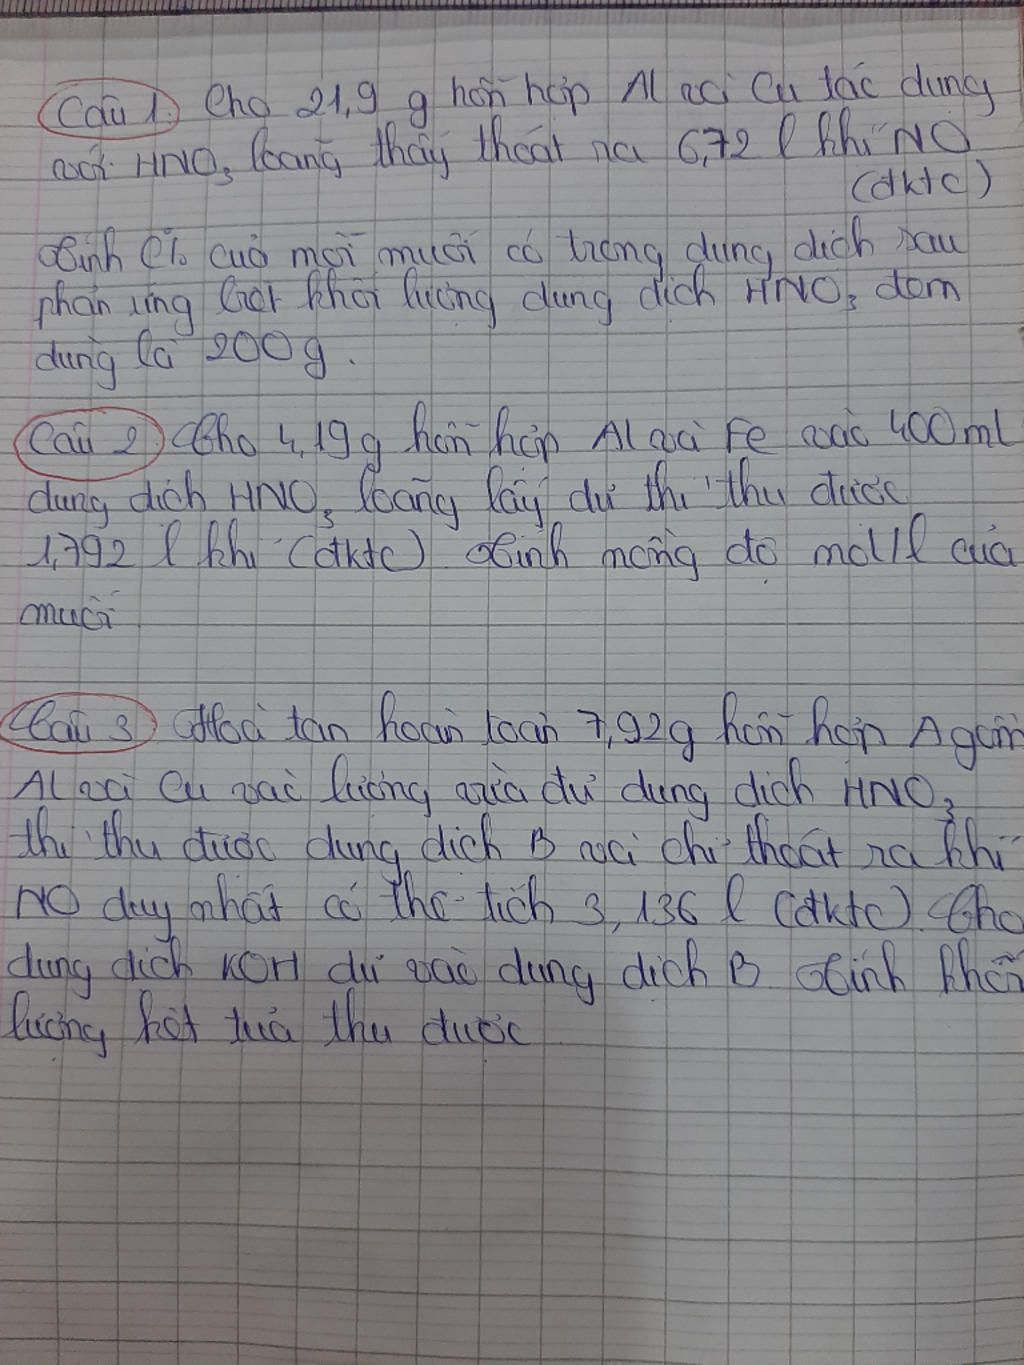 Câu 1. Cho 21,9 g hỗn hợp Al và Cu tác dụng
với HNO3 loãng thấy thoát ra 6,72 l khí NO
(đktc)
Tính C% của mỗi muối có trong dung dịch sau
phản ứng biết khối lượng dung dịch HNO3 đem
dùng là 200g.
Câu 2 Cho 4,19g hỗn hợp Al và Fe vào 400ml
dung dịch HNO3 loãng lấy dư thì thu được
1,792 l khí (đktc) Tính nồng độ mol/l của
muối
Câu 3 Hoà tan hoàn toàn 7,92g hỗn hợp A gồm
Al và Cu vào lượng vừa đủ dung dịch HNO3
thì thu được dung dịch B và chỉ thoát ra khí
NO duy nhất có thể tích 3,136 l (đktc). Cho
dung dịch KOH dư vào dung dịch B Tính khối
lượng kết tủa thu được